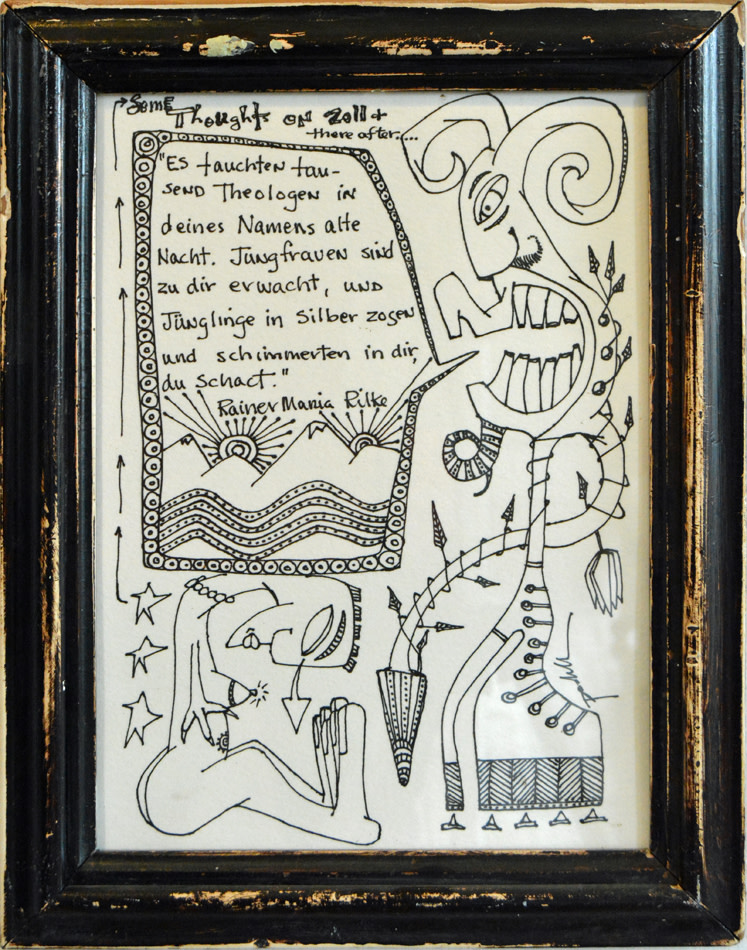 Some Thoughts on Zoll +
there after....
"Es tauchten tau-
send Theologen in
deines Namens alte
Nacht. Jungfrauen sind
zu dir erwacht, und
Jünglinge in Silber zogen
und schimmerten in dir,
du Schact."
Rainer Maria Rilke